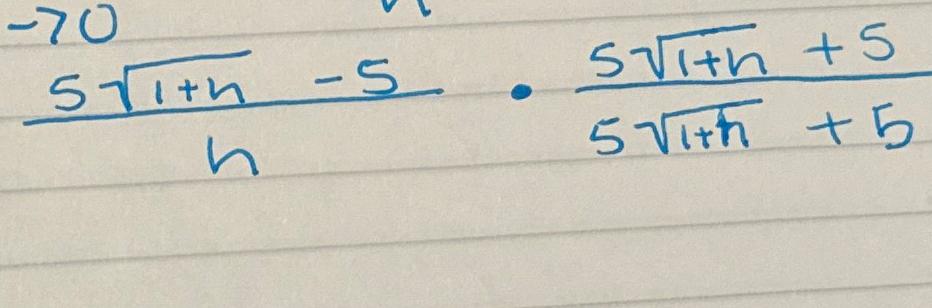 →0
5√(1+h) -5 / h · 5√(1+h) +5 / 5√(1+h) +5